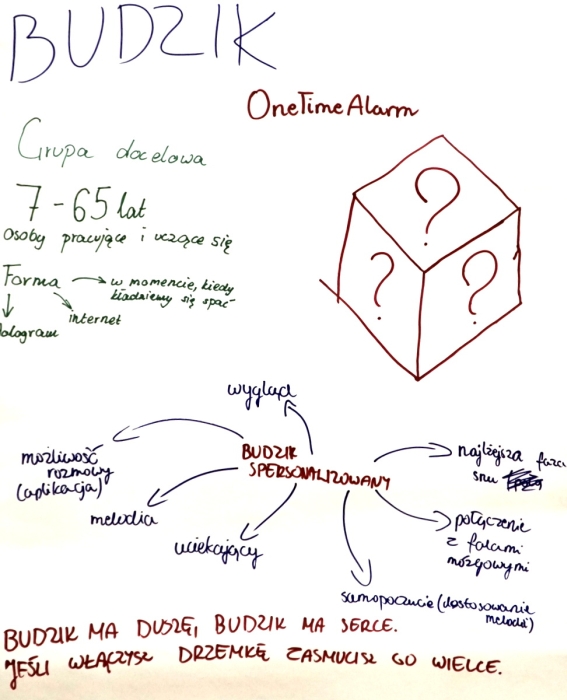 BUDZIK
OneTimeAlarm
Grupa docelowa
7-65 lat
osoby pracujące i uczące się
Forma
w momencie, kiedy
kładziemy się spać
internet
hologram
?
?
?
wygląd
możliwość
rozmowy
(aplikacja)
BUDZIK
SPERSONALIZOWANY
najlżejsza faza
snu
melodia
uciekający
połączenie
z falami
mózgowymi
samopoczucie (dostosowanie
melodii)
BUDZIK MA DUSZĘ, BUDZIK MA SERCE.
JEŚLI WŁĄCZYSZ DRZEMKĘ ZASMUCISZ GO WIELCE.